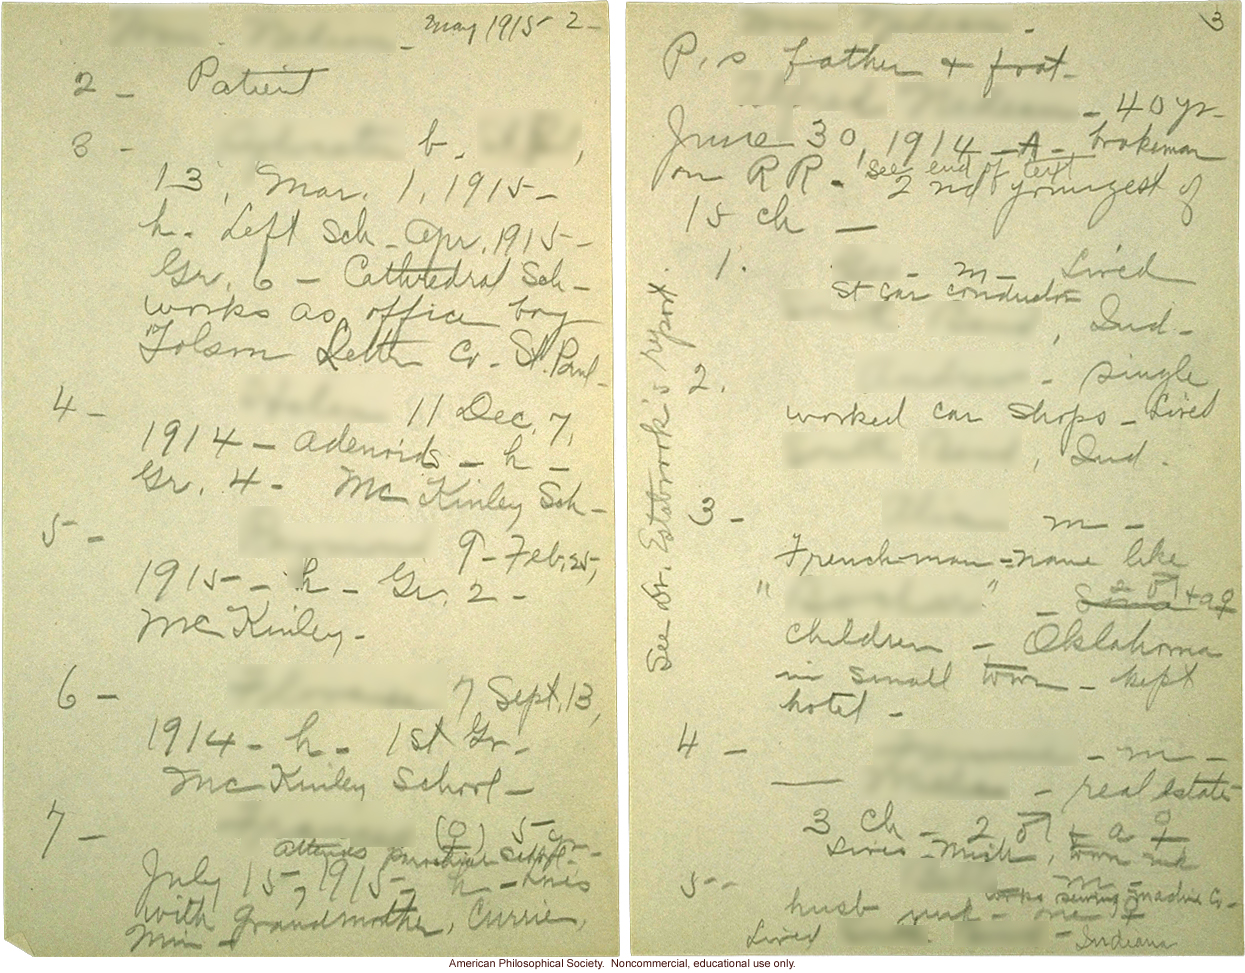 May 1915 2-
2 - Patient
3 - b.
13, Mar. 1, 1915 -
h. Left Sch - Apr. 1915 -
Gr. 6 - Cathedral Sch -
works as office boy
Letter Co - St. Paul -
4 - 11 Dec, 7,
1914 - adenoids - h -
Gr. 4 - McKinley Sch -
5 - 9 - Feb, 25,
1915 - h - Gr. 2 -
McKinley -
6 - 7 Sept, 13,
1914 - h - 1st Gr -
McKinley School -
7 - (♀) 5 yr -
attends parochial school -
July 15, 1915 - h - lives
with Grandmother, Currie,
Minn -
3
P's father & frat -
- 40 yr -
June 30, 1914 - A - brakeman
on RR - see end of text
2nd youngest of
15 ch -
1. - m - Lived
St car conductor
, Ind -
2. - single
worked car shops - Lived
, Ind -
3 - m -
Frenchman - name like
" " - 2 ♂ + a ♀
children - Oklahoma
in small town - kept
hotel -
4 - - m -
- real estate
3 ch - 2 ♂ + a ♀
Lives - Mich, town unk
5 - m -
works sewing machine Co -
husb unk - one ♀
Lived - Indiana
See Dr. Estabrook's report.
American Philosophical Society. Noncommercial, educational use only.